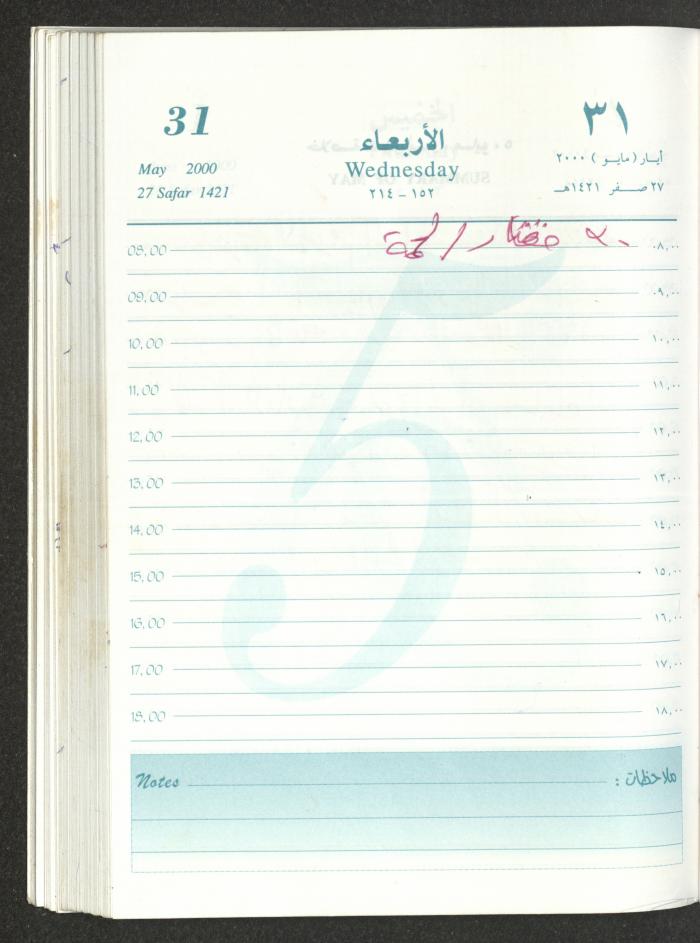 31
٣١
الأربعاء
May 2000
Wednesday
أيار (مايو) ٢٠٠٠
27 Safar 1421
١٥٢ - ٢١٤
٢٧ صفر ١٤٢١هـ
08,00 ٠٨,٠٠
09,00 ٠٩,٠٠
10,00 ١٠,٠٠
11,00 ١١,٠٠
12,00 ١٢,٠٠
13,00 ١٣,٠٠
14,00 ١٤,٠٠
15,00 ١٥,٠٠
16,00 ١٦,٠٠
17,00 ١٧,٠٠
18,00 ١٨,٠٠
5
Notes ملاحظات :